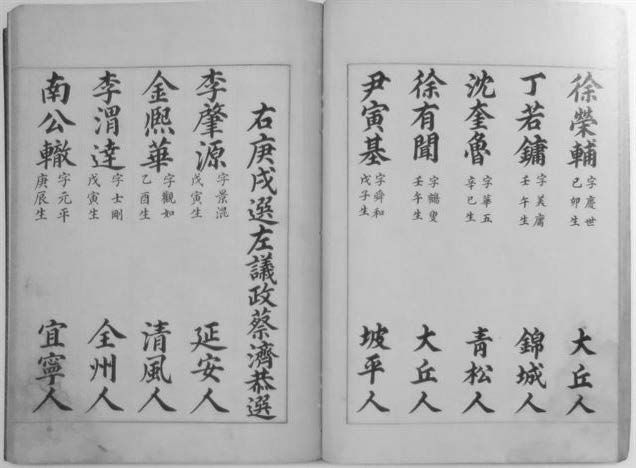 徐榮輔 字慶世 己卯生 大丘人
丁若鏞 字美庸 壬午生 錦城人
沈奎魯 字華五 辛巳生 青松人
徐有聞 字鶴叟 壬午生 大丘人
尹寅基 字舜和 戊子生 坡平人
右庚戌選左議政蔡濟恭選
李肇源 字景混 戊寅生 延安人
金熈華 字觀如 乙酉生 清風人
李渭達 字士剛 戊寅生 全州人
南公轍 字元平 庚辰生 宜寧人